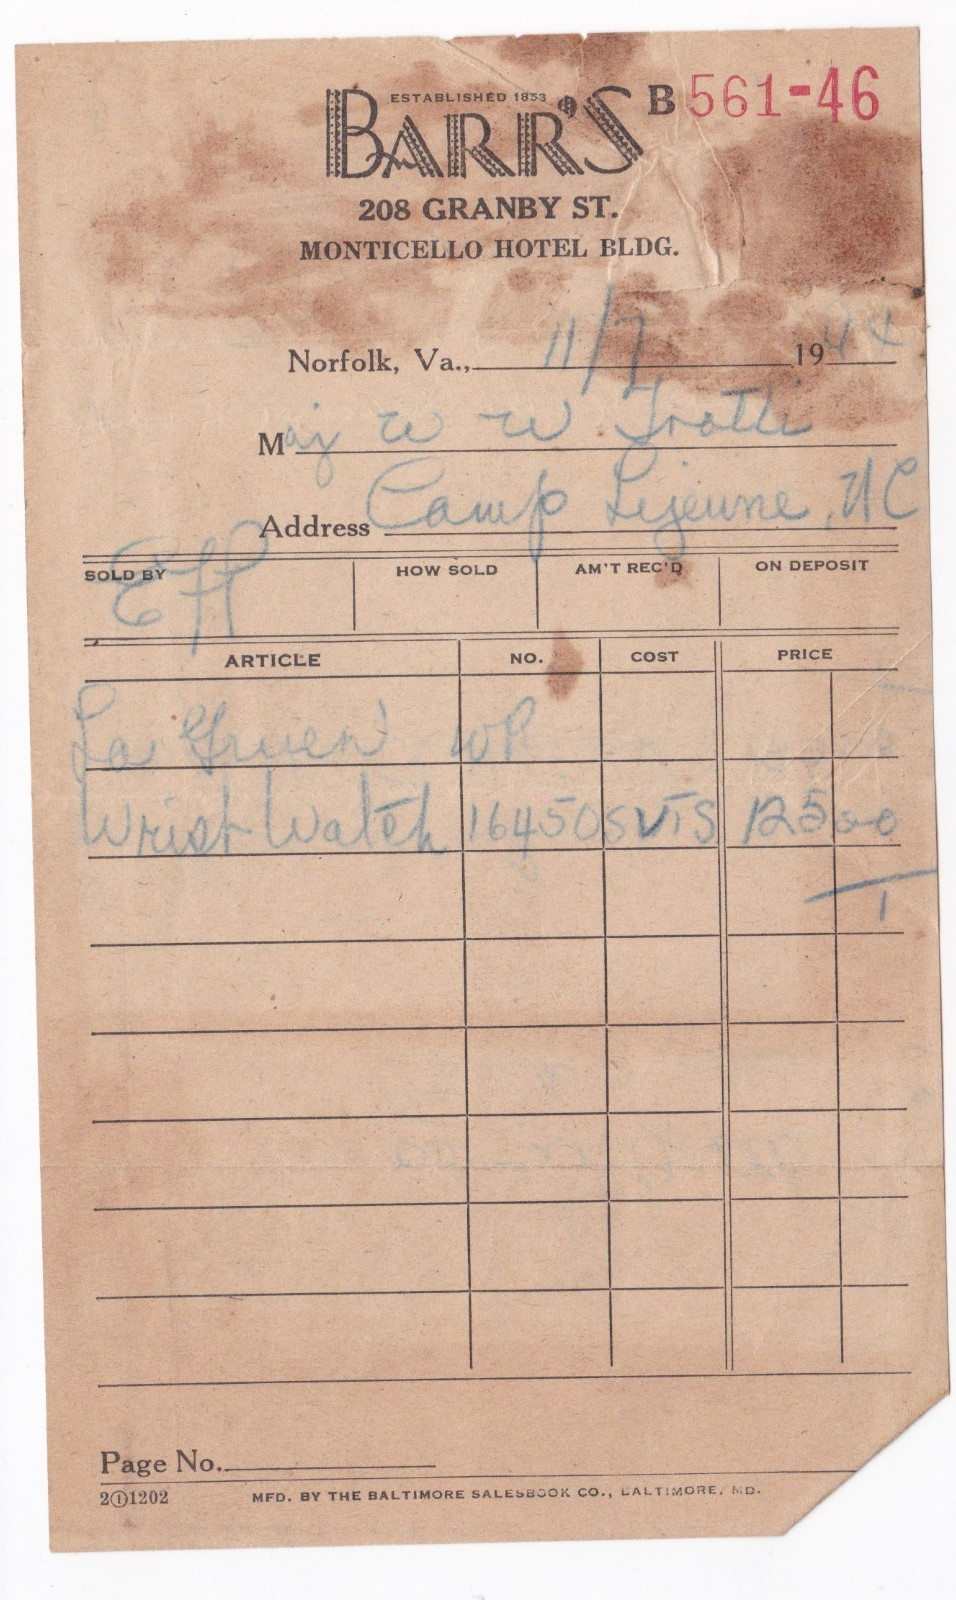 ESTABLISHED 1853
BARR'S
B561-46
208 GRANBY ST.
MONTICELLO HOTEL BLDG.
Norfolk, Va., 11/7 1944
Maj W W Trotti
Address Camp Lejeune, NC
SOLD BY Eff HOW SOLD AM'T REC'D ON DEPOSIT
ARTICLE NO. COST PRICE
La Gruen WP
Wrist Watch 16450 SVTS 125 00
Page No.
2①1202 MFD. BY THE BALTIMORE SALESBOOK CO., BALTIMORE, MD.